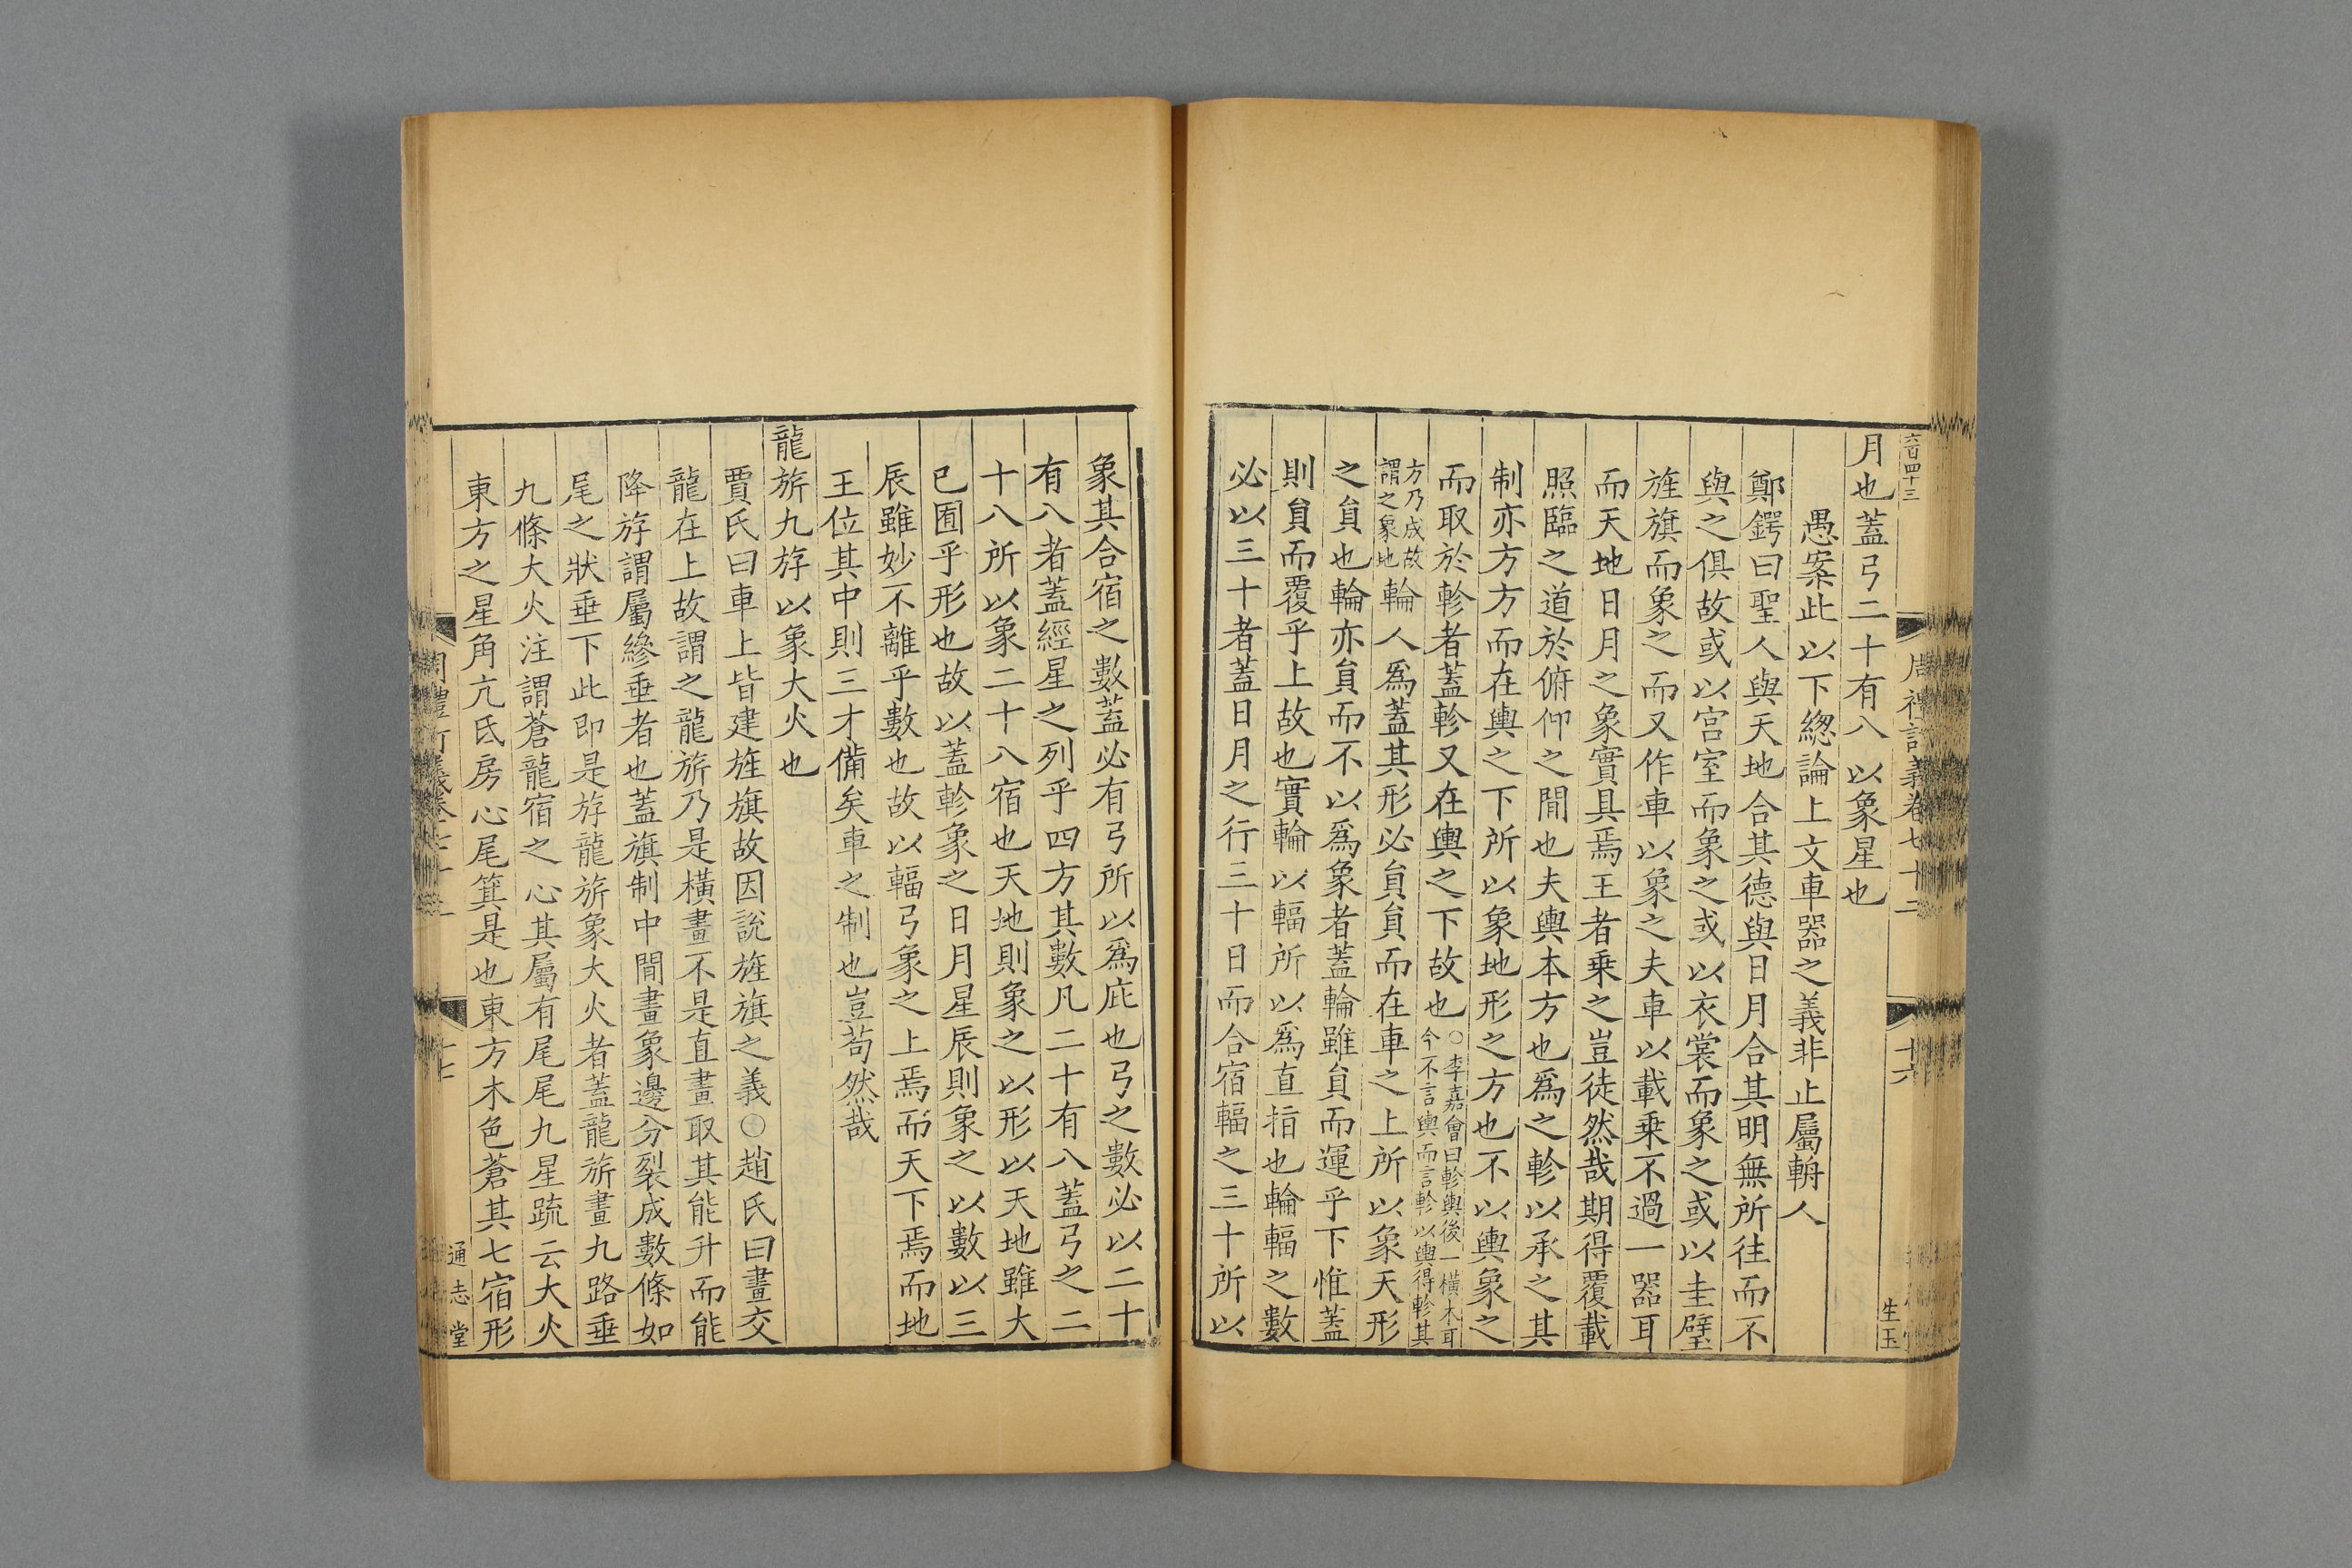 六百四十三
周禮訂義卷七十二
十六
生玉
月也蓋弓二十有八以象星也
愚案此以下緫論上文車器之義非止屬輈人
鄭鍔曰聖人與天地合其德與日月合其明無所往而不
與之俱故或以宮室而象之或以衣裳而象之或以圭璧
旌旗而象之而又作車以象之夫車以載乗不過一器耳
而天地日月之象實具焉王者乗之豈徒然哉期得覆載
照臨之道於俯仰之閒也夫輿本方也爲之軫以承之其
制亦方方而在輿之下所以象地形之方也不以輿象之
而取於軫者蓋軫又在輿之下故也○李嘉會曰軫輿後一橫木耳
今不言輿而言軫以輿得軫其
方乃成故
謂之象地
輪人爲蓋其形必貟貟而在車之上所以象天形
之貟也輪亦貟而不以爲象者蓋輪雖貟而運乎下惟蓋
則貟而覆乎上故也實輪以輻所以爲直指也輪輻之數
必以三十者蓋日月之行三十日而合宿輻之三十所以
象其合宿之數蓋必有弓所以爲庇也弓之數必以二十
有八者蓋經星之列乎四方其數凡二十有八蓋弓之二
十八所以象二十八宿也天地則象之以形以天地雖大
已囿乎形也故以蓋軫象之日月星辰則象之以數以三
辰雖妙不離乎數也故以輻弓象之上焉而天下焉而地
王位其中則三才備矣車之制也豈苟然哉
龍旂九斿以象大火也
賈氏曰車上皆建旌旗故因說旌旗之義○趙氏曰畫交
龍在上故謂之龍旂乃是橫畫不是直畫取其能升而能
降斿謂屬縿垂者也蓋旗制中閒畫象邊分裂成數條如
尾之狀垂下此即是斿龍旂象大火者蓋龍旂畫九路垂
九條大火注謂蒼龍宿之心其屬有尾尾九星疏云大火
東方之星角亢氐房心尾箕是也東方木色蒼其七宿形
周禮訂義卷七十二
十七
通志堂